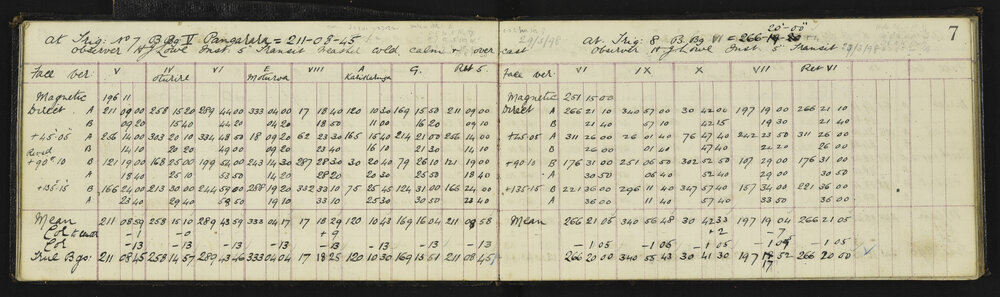 At Trig: No 7 B Bg V Pangarara = 211-08-45
Observer H J Lowe Inst. 5" Transit Weather cold calm & over cast
Face ver: V IV VI E VIII A G. Ret 5.
Oturire Moturoa Karikaringa
Magnetic 196 11
Direct A 211 09 00 258 15 20 289 44 00 333 04 00 17 18 40 120 10 30 169 15 50 211 09 00
B 09 20 15 40 44 20 04 20 18 50 11 00 16 20 09 10
+45·05' A 256 14 00 303 20 10 334 48 50 18 09 20 62 23 30 165 15 40 214 21 00 256 14 00
B 14 10 20 20 49 00 09 20 23 40 16 10 21 30 14 10
Revsd
+90°10 B 121 19 00 168 25 00 199 54 00 243 14 30 287 28 30 30 20 40 79 26 10 121 19 00
A 18 40 25 10 53 50 14 20 28 20 20 30 25 50 18 40
+135·15' B 166 24 00 213 30 00 244 59 00 288 19 20 332 33 10 75 25 45 124 31 00 166 24 00
A 23 40 29 40 58 50 19 10 33 10 25 30 30 50 23 40
Mean 211 08 59 258 15 10 289 43 59 333 04 17 17 18 29 120 10 43 169 16 04 211 08 58
-1 -0 +9
Col -13 -13 -13 -13 -13 -13 -13 -13
True Bgs: 211 08 45 258 14 57 289 43 46 333 04 04 17 18 25 120 10 30 169 15 51 211 08 45
7
20'-00"
At Trig: 8 B. Bg VI = 266-19-20
Observer H J Lowe Inst. 5" Transit 29/5/98
Face ver: VI IX X VII Ret VI
Magnetic 251 15 00
Direct A 266 21 10 340 57 00 30 42 00 197 19 00 266 21 10
B 21 40 57 10 42 15 19 30 21 40
+45·05 A 311 26 00 26 01 40 76 47 40 242 23 50 311 26 00
B 26 00 01 40 47 40 24 20 26 00
+90 10 B 176 31 00 251 06 50 302 52 50 107 29 00 176 31 00
A 30 50 06 40 52 40 29 00 30 50
+135·15 B 221 36 00 296 11 40 347 57 40 157 34 00 221 36 00
A 36 00 11 40 57 40 33 50 36 00
Mean 266 21 05 340 56 48 30 42 33 197 19 04 266 21 05
+2 -7
-1 05 -1 05 -1 05 -1 05 -1 05
266 20 00 340 55 43 30 41 30 197 17 52 266 20 00